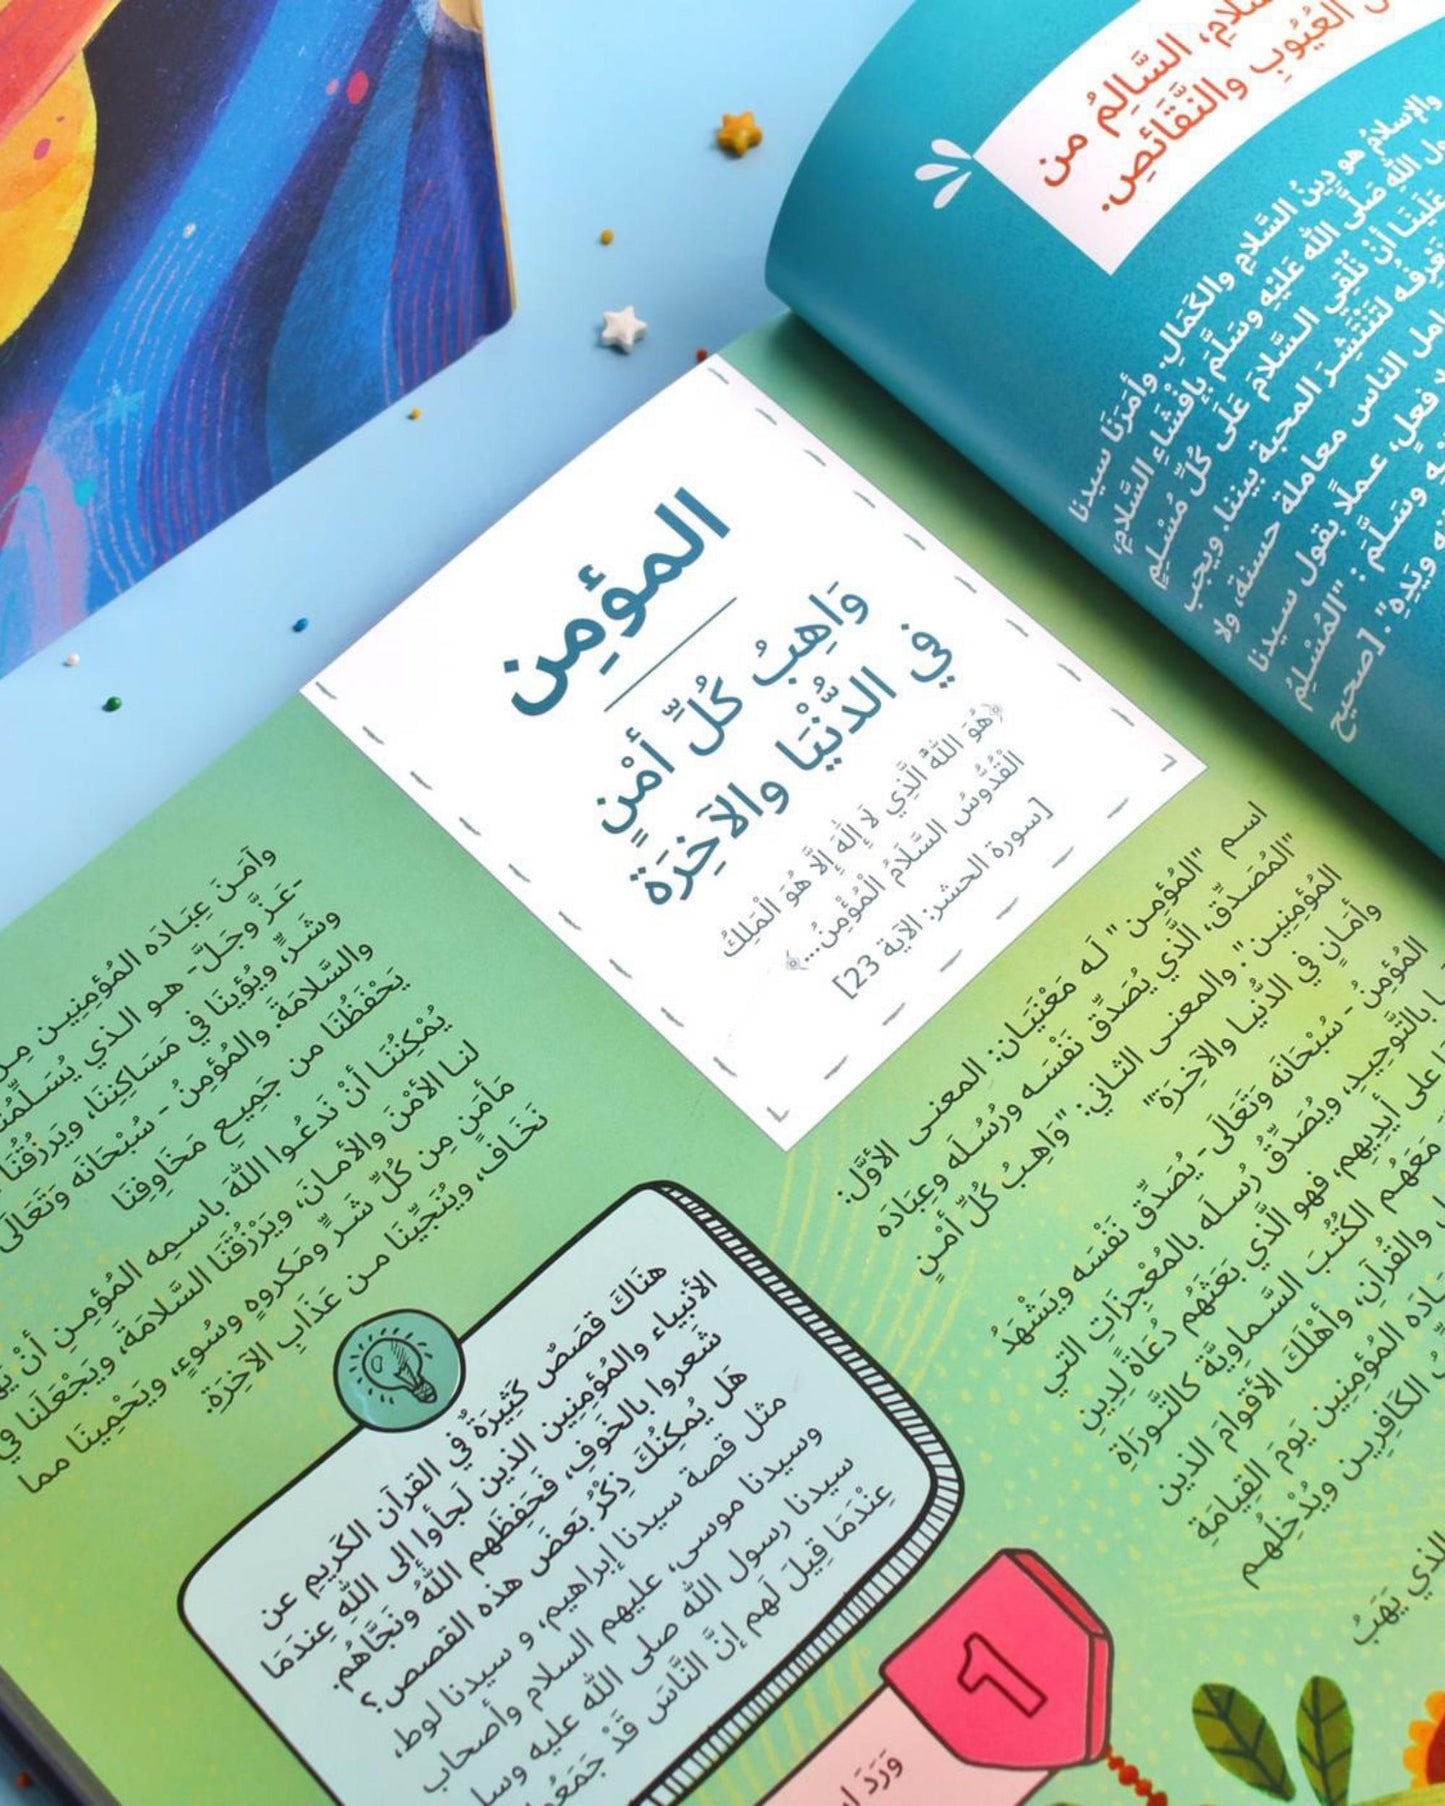 السَّلامِ، السَّالِمُ من
العُيُوبِ والنَّقَائصِ.
والإسلامُ هو دِينُ السَّلامِ والكَمَالِ. وأمَرَنَا سيدنا
رسول الله صَلَّى الله عَلَيْهِ وسَلَّمَ بإفْشَاءِ السَّلامِ،
عَلَينَا أنْ نُلْقِي السَّلامَ عَلَى كُلِّ مُسْلِمٍ
لتَنْتَشِرَ المحبة بيننا. ويجب
الناس معاملة حسنة، ولا
فعلٍ، عملًا بقول سيدنا
وسَلَّمَ: "المُسْلِمُ
ويَدِهِ". [صحيح
المؤمِن
وَاهِبُ كُلِّ أمْنٍ
في الدُّنْيَا والآخِرَة
﴿هُوَ اللَّهُ الَّذِي لَا إِلَٰهَ إِلَّا هُوَ الْمَلِكُ
الْقُدُّوسُ السَّلَامُ الْمُؤْمِنُ...﴾
[سورة الحشر: الآية 23]
اسم "المُؤمِن" لَه مَعْنَيَان: المعنى الأوَّل:
"المُصَدِّق، الَّذي يُصَدِّق نَفْسَه ورُسُلَه وعِبَادَه
المُؤمِنِين". والمعنى الثاني: "وَاهِبُ كُلِّ أمْنٍ
وأمَانٍ في الدُّنيا والآخِرَة"
المُؤمِنُ - سُبْحَانَه وَتَعَالَى- يُصَدِّق نَفْسَه ويَشْهَدُ
بالتَّوحِيدِ، ويُصَدِّقُ رُسلَه بالمُعْجِزَاتِ التي
على أيدِيهِم، فهو الَّذي بَعَثَهُم دُعَاةً لِدِينِ
مَعَهُم الكُتُبَ السَّماوِيَّة كالتَّورَاةِ
والقُرآنِ، وأهْلَكَ الأقوامَ الذين
المؤمِنِين يَومَ القِيامَةِ
الكَافِرِين ويُدْخِلُهم
الذي يَهَبُ
وآمَنَ عِبَادَه المُؤمِنِين مِن
-عَزَّ وجَلَّ- هو الذي يُسَلِّمُنَا
وشَرٍّ، ويُؤْوِينَا في مَسَاكِنِنَا، ويَرزُقُنَا
والسَّلامَةَ. والمُؤمِنُ - سُبْحَانَه وَتَعَالَى
يَحْفَظُنَا من جَمِيعِ مَخَاوِفِنَا
يُمْكِنُنَا أنْ نَدعُوا اللهَ باسمِه المُؤمِنِ أنْ
لنا الأمْنَ والأمانَ، ويَرْزُقَنَا السَّلامَةَ، ويَجْعَلَنَا في
مَأمَنٍ مِن كُلِّ شَرٍّ ومَكروهٍ وسُوءٍ، ويَحْمِينَا مما
نَخَاف، ويُنَجِّيَنَا من عَذَابِ الآخِرَةِ.
هنَاكَ قصَصٌ كَثِيرَةٌ في القرآن الكَرِيمِ عن
الأنبِياء والمُؤمِنِين الذين لَجأوا إلى اللهِ عِندَمَا
شَعروا بالخَوفِ، فَحَفِظَهم اللهُ ونَجَّاهُم.
هَل يُمكِنُكَ ذِكْرُ بَعضَ هذه القصص؟
مثل قصة سيدنا إبراهيم، و سيدنا لوط،
وسيدنا موسى، عليهم السلام وأصحاب
سيدنا رسول الله صلى الله عليه وسلم
عِنْدَمَا قِيلَ لَهم إنَّ النَّاسَ قَدْ
1
وَرَدَ